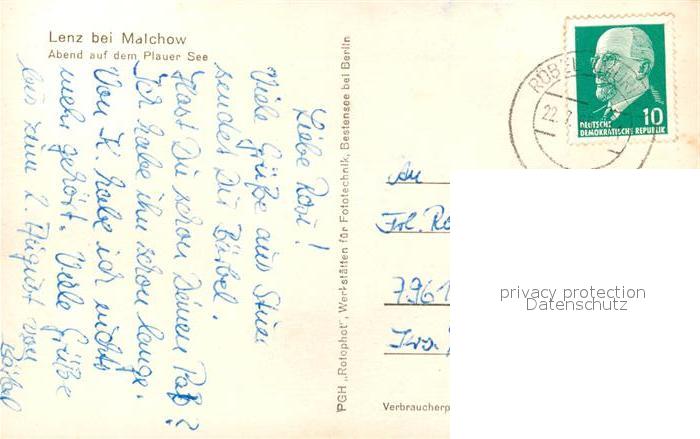 Lenz bei Malchow
Abend auf dem Plauer See
Liebe Rosi!
Viele Grüße aus
sendet Dir Bärbel.
Hast Du schon Deinen Paß?
Ich habe ihn schon lange.
Von K. habe ich nichts
mehr gehört. Viele Grüße
bis zum 2. August von
Bärbel
PGH „Rotophot", Werkstätten für Fototechnik, Bestensee bei Berlin
RÖBEL
22.7
10
DEUTSCHE
DEMOKRATISCHE REPUBLIK
An
Frl. Ro
7961
Verbraucherp
privacy protection
Datenschutz